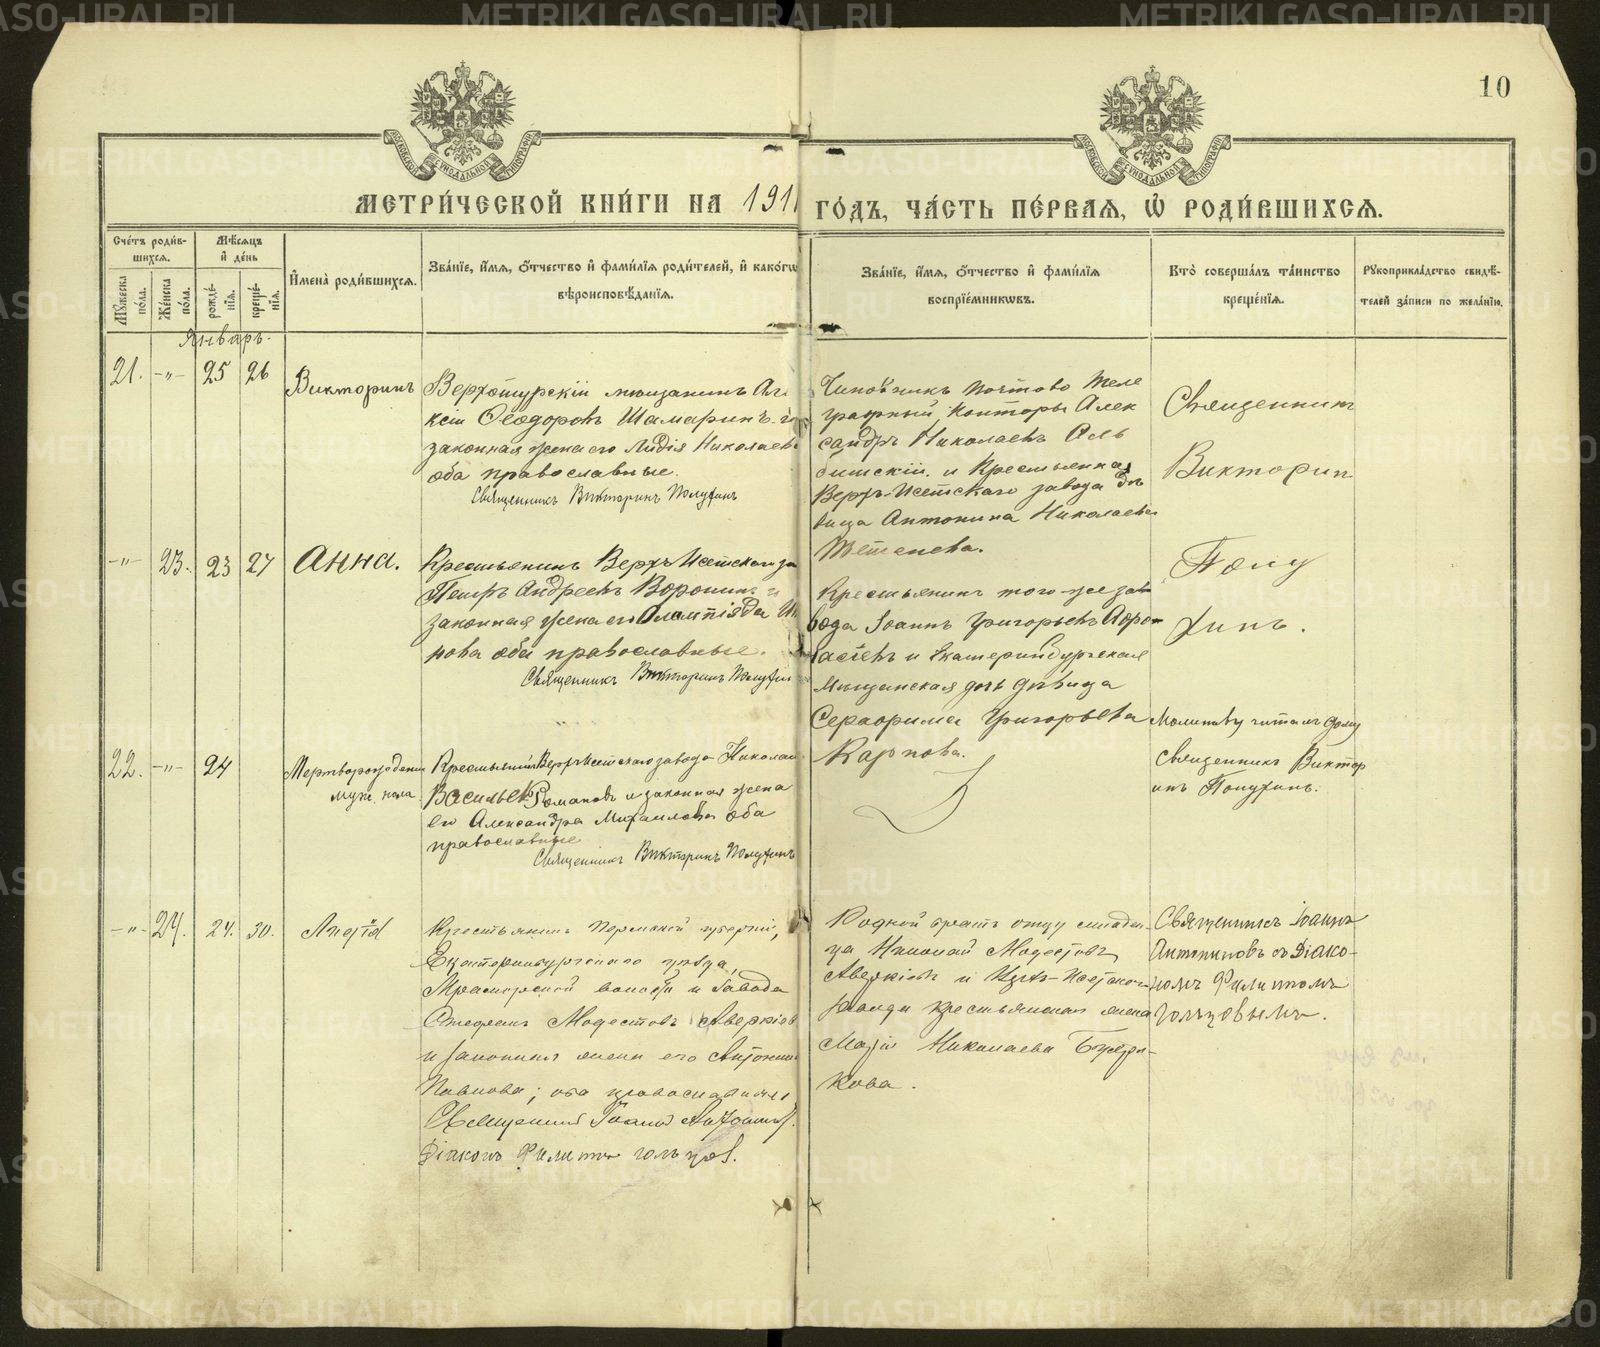 10
МЕТРИ́ЧЕСКОЙ КНИ́ГИ НА 1911 ГО́ДЪ, ЧА́СТЬ ПЕ́РВАЯ, Ѡ РОДИ́ВШИХСЯ.
Сче́тъ роди́в-
шихся.
Мѣ́сяцъ
и де́нь
Му́жеска
по́ла.
Же́нска
по́ла.
рожде́-
нія.
креще́-
нія.
Имена̀ роди́вшихся.
Зва́ніе, и́мя, о́тчество и фами́лія роди́телей, и како́гѡ
вѣроисповѣ́данія.
Зва́ніе, и́мя, о́тчество и фами́лія
воспріе́мникѡвъ.
Кто̀ соверша́лъ та́инство
креще́нія.
Рукоприкла́дство свидѣ́-
телей за́писи по жела́нію.
Январь.
21. -"- 25 26
Викторинъ
Верхотурскій мѣщанинъ Але
ксій Ѳеодоровъ Шамаринъ и
законная жена его Лидія Николаев
оба православные.
Священникъ Викторинъ Полухинъ
Чиновникъ Почтово Теле
графный Конторы Алек
сандръ Николаевъ Аль
и Крестьянка
Верхъ-Исетскаго завода дѣ
вица Антонина Николаева
Священник
Викторин
Полу
хинъ.
-"- 23. 23 27
Анна.
Крестьянинъ Верхъ-Исетскаго за
Петръ Андреевъ Воронинъ и
законная жена его Олимпіада
нова оба православные.
Священникъ Викторинъ Полухин
Крестьянинъ того-же за
вода Іоаннъ Григорьевъ Афон
асіевъ и Екатеринбургская
Мѣщанская дочь дѣвица
Серафима Григорьева
Карпова.
22. -"- 24
Мертворожденн
муж. пола
Крестьянинъ Верхъ-Исетскаго завода Николай
Васильевъ Романовъ и законная жена
его Александра Михаилова оба
православные
Священникъ Викторинъ Полухинъ
Молитву читалъ дому
священникъ Виктор
инъ Полухинъ.
-"- 24. 24. 30.
Лидія
Крестьянинъ Пермской губерніи,
Екатеринбургскаго уѣзда,
Мраморской волости и Завода
Модестовъ Аверкіев
и законная жена его Антонин
Павлова; оба православные
Священникъ Іоаннъ Антонинов.
Діаконъ Филиппъ Гольцов.
Родной братъ отцу младен
ца Николай Модестовъ
Аверкіевъ и
крестьянская жена
Марія Николаева
кова.
Священникъ Іоаннъ
Антониновъ съ Діако-
номъ Филиппомъ
Гольцовымъ.
METRIKI.GASO-URAL.RU